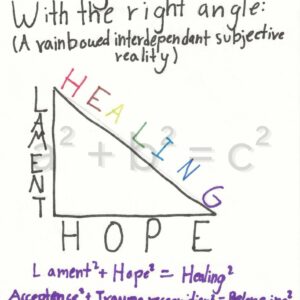 With the right angle:
(A rainbowed interdependent subjective
reality)
LAMENT
HEALING
a² + b² = c²
HOPE
Lament² + Hope² = Healing²
Acceptance² + Trauma recognition² = Belonging²